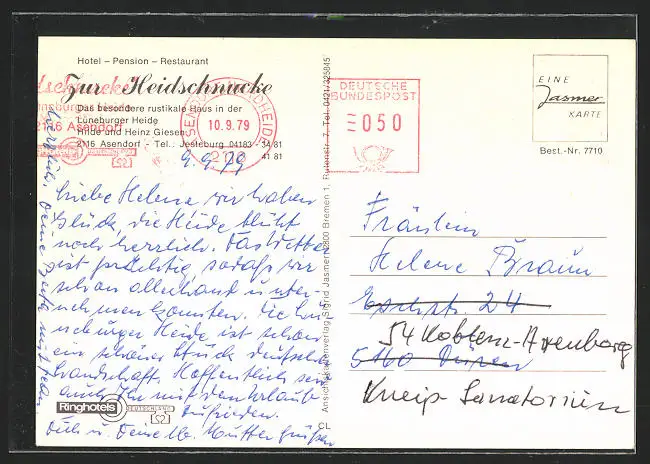 Hotel - Pension - Restaurant
Zur Heidschnucke
Das besondere rustikale Haus in der
Lüneburger Heide
Hilde und Heinz Giesen
2116 Asendorf - Tel.: Jesteburg 04183 - 34 81
41 81
2116 Asendorf
10.9.79
DEUTSCHE
BUNDESPOST
050
EINE
Jasmer
KARTE
Best.-Nr. 7710
9.9.79
Liebe Helene wir haben
Glück, die Heide blüht
noch herrlich. Das Wetter
ist prächtig, sodaß wir
schon allerhand unter-
nehmen konnten. Die Lü-
neburger Heide ist schon
ein schönes Stück deutsche
Landschaft. Hoffentlich seid
auch Ihr mit dem Urlaub
zufrieden.
Dich u. Deine lb. Mutter grüßen
herzlich, Deine
Ringhotels
DEUTSCHLAND
Ansichtskartenverlag Sigrid Jasmer, 2800 Bremen 1, Rutenstr. 7, Tel. 0421/325845
CL
Fräulein
Helene Braun
24
54 Koblenz-Arenberg
5160 Düren
Kneip-Sanatorium